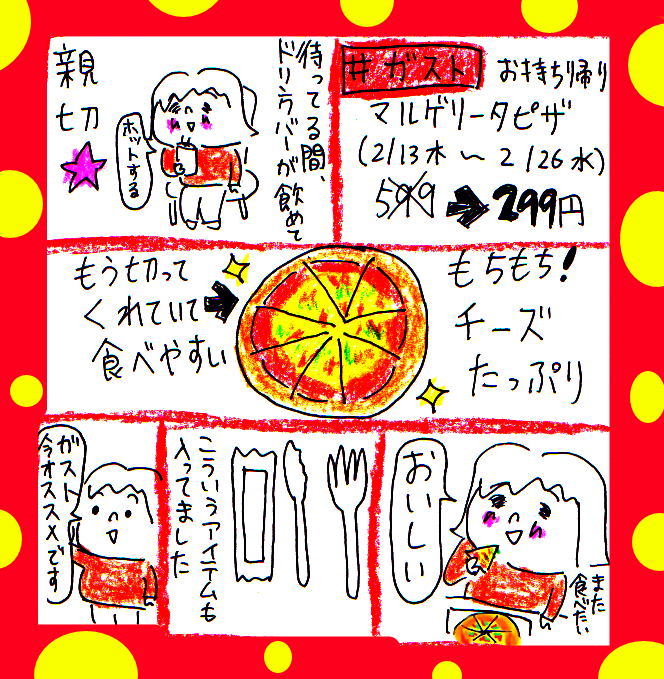 #ガスト お持ち帰り
マルゲリータピザ
(2/13木〜2/26水)
599➡299円
待ってる間、
ドリンクバーが飲めて
親
切
ホットする
もちもち!
チーズ
たっぷり
もう切って
くれていて
食べやすい
おいしい
また
食べたい
こういうアイテムも
入ってました
ガスト
今オススメです